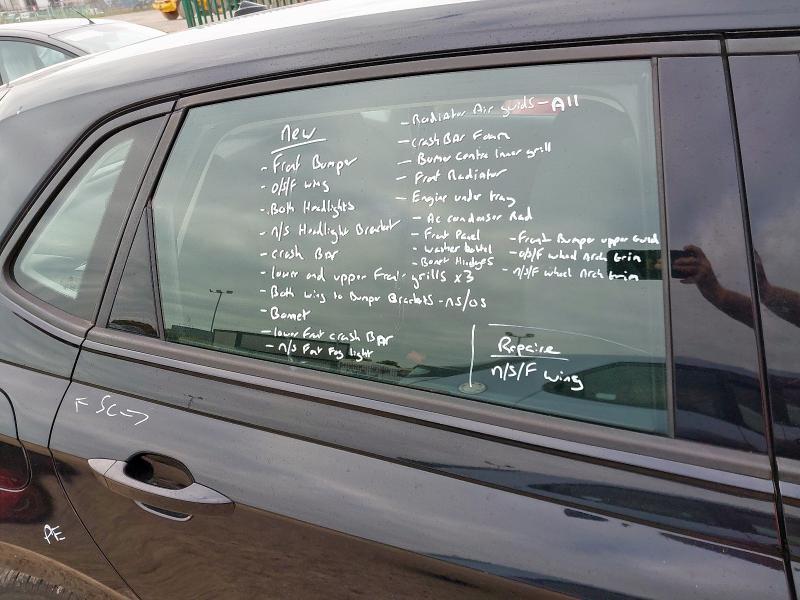 new
- Front Bumper
- O/S/F wing
- Both Headlights
- n/s Headlight Bracket
- crash BAr
- lower and upper Front grills x3
- Both wing to Bumper Brackets - ns/os
- Bonet
- lower Frnt crash BAr
- n/s Frnt Fog light
- Radiator Air guids - All
- crash BAr Foam
- Bumer centre lower grill
- Frnt Radiator
- Engine under tray
- Ac condenser Rad
- Front Panel
- washer bottel
- Bonet Hindges
- Front Bumper upper Guid
- O/S/F wheel Arch trim
- n/s/F wheel Arch trim
Repaire
n/s/F wing
F SC
PE